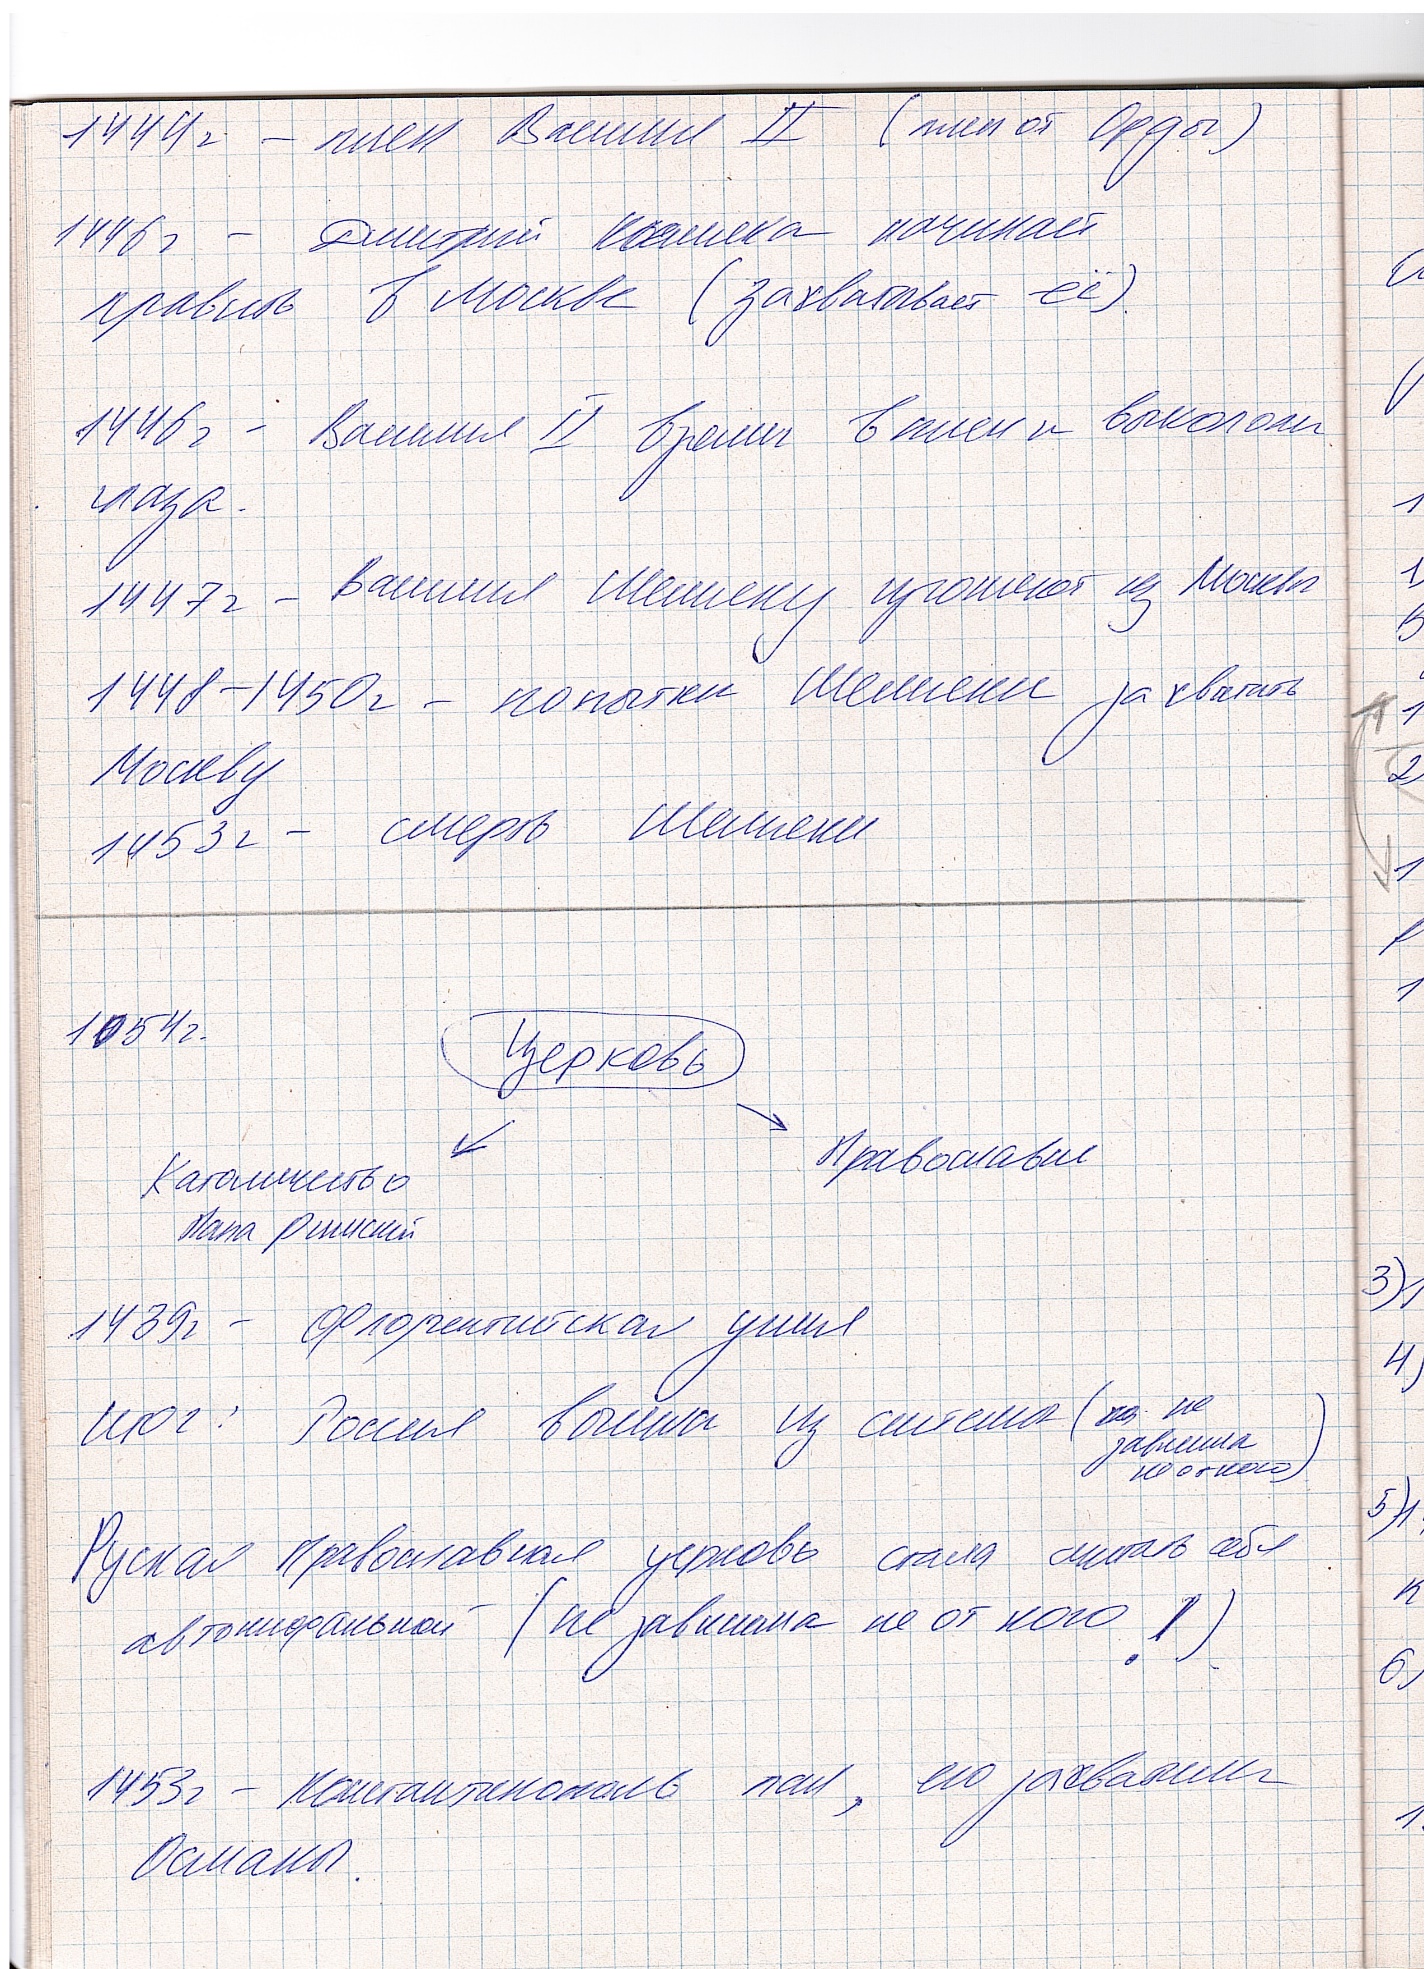 1444г - плен Василия II (плен от Орды)
1446г - Дмитрий начинает
править в Москве (захватывает её).
1446г - Василия II взяли в плен и выкололи
глаза.
1447г - Василия Шемяку изгоняют из Москвы
1448-1450г - попытки Шемяки захватить
Москву
1453г - смерть Шемяки
1054г.
Церковь
Католичество
Православие
Папа Римский
1439г - Флорентийская уния
Итог: Россия вышла из системы (не
зависила
не от кого)
Руская Православная церковь стала считать себя
автокифальной (не зависима не от кого!)
1453г - Константинополь пал, его захватили
Османы.
3)1
4)
5)1
к
6)